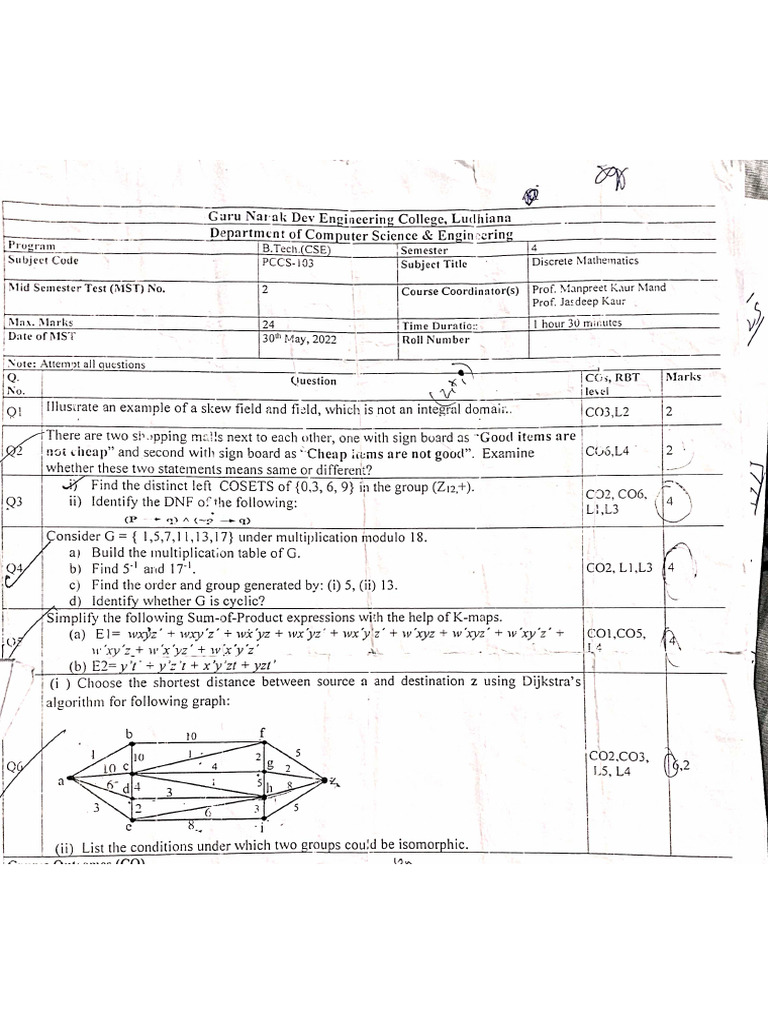 Guru Nanak Dev Engineering College, Ludhiana
Department of Computer Science & Engineering
Program B.Tech.(CSE) Semester 4
Subject Code PCCS-103 Subject Title Discrete Mathematics
Mid Semester Test (MST) No. 2 Course Coordinator(s) Prof. Manpreet Kaur Mand
Prof. Jasdeep Kaur
Max. Marks 24 Time Duration 1 hour 30 minutes
Date of MST 30th May, 2022 Roll Number
Note: Attempt all questions
Q. No. Question COs, RBT level Marks
Q1 Illustrate an example of a skew field and field, which is not an integral domain. CO3,L2 2
Q2 There are two shopping malls next to each other, one with sign board as "Good items are
not cheap" and second with sign board as "Cheap items are not good". Examine CO6,L4 2
whether these two statements means same or different?
Q3 i) Find the distinct left COSETS of {0,3, 6, 9} in the group (Z12,+). CO2, CO6, L1,L3 4
ii) Identify the DNF of the following:
(P → q) ∧ (~p → q)
Q4 Consider G = { 1,5,7,11,13,17} under multiplication modulo 18.
a) Build the multiplication table of G.
b) Find 5-1 and 17-1. CO2, L1,L3 4
c) Find the order and group generated by: (i) 5, (ii) 13.
d) Identify whether G is cyclic?
Q5 Simplify the following Sum-of-Product expressions with the help of K-maps.
(a) E1= wxyz´ + wxy´z´ + wx´yz + wx´yz´ + wx´y´z´ + w´xyz + w´xyz´ + w´xy´z´ + CO1,CO5, L4 4
w´xy´z + w´x´yz´ + w´x´y´z´
(b) E2= y't´ + y'z't + x'y'zt + yzt'
Q6 (i ) Choose the shortest distance between source a and destination z using Dijkstra's
algorithm for following graph:
b 10 f
1 10 1 2 5
10 c 4 g 2
a 6 d 4 3 5 h 8 z
3 2 6 3 5
e 8 i
CO2,CO3, L5, L4 6,2
(ii) List the conditions under which two groups could be isomorphic.